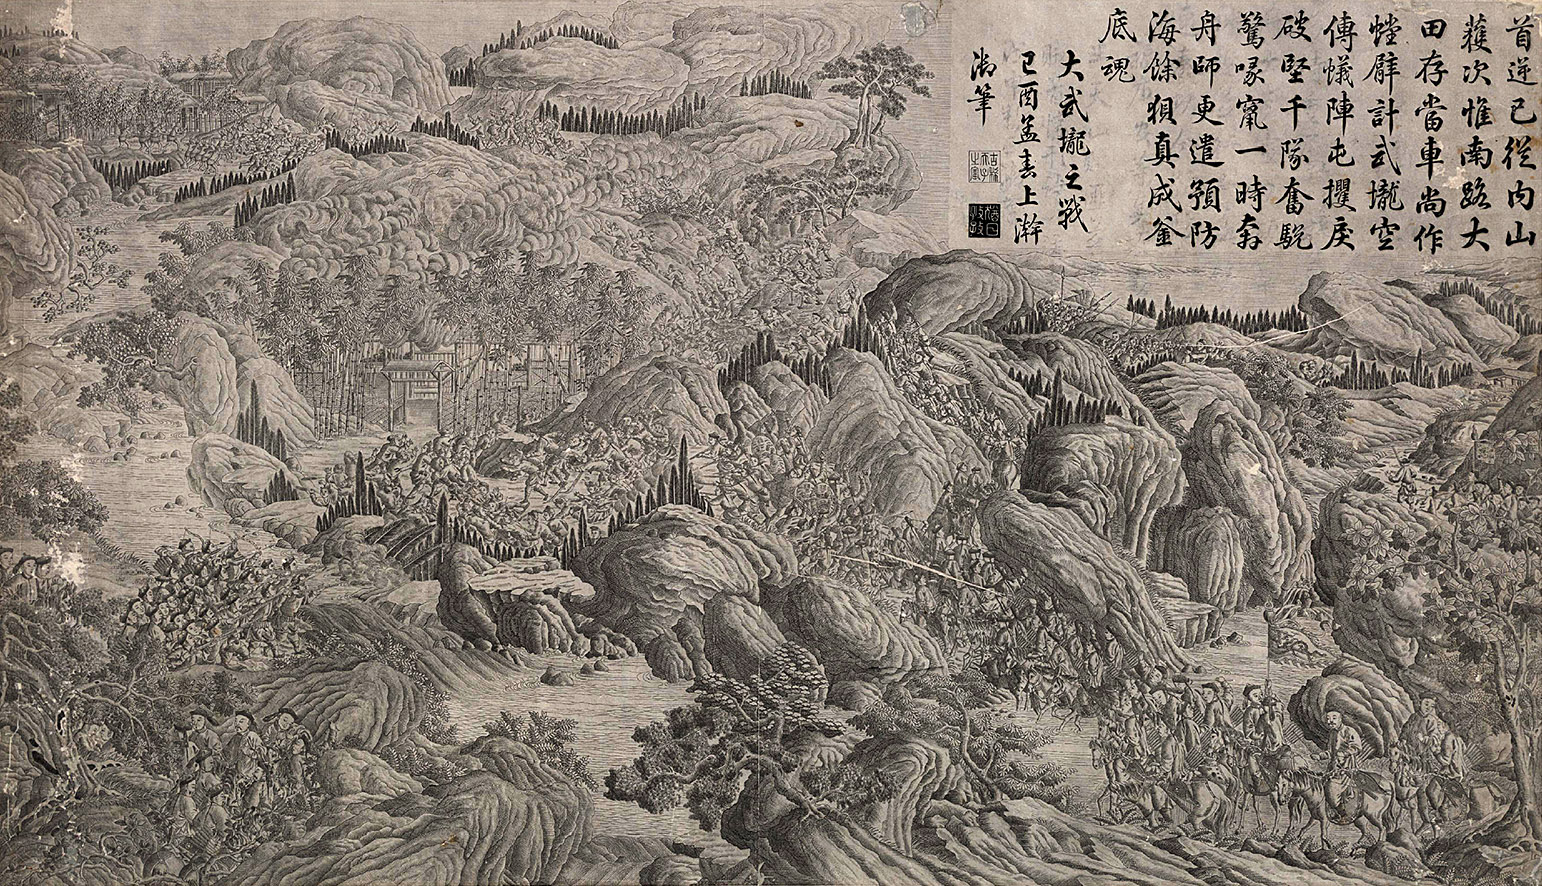 首逆已從内山
獲次惟南路大
田存當車尚作
螳臂計武壠空
傳蟻陣屯攫戾
破堅千隊奮駾
驚喙竄一時奔
舟師更遣預防
海餘狽真成釜
底魂
大武壠之戰
己酉孟春上澣
御筆
古稀天子之寶
猶日孜孜